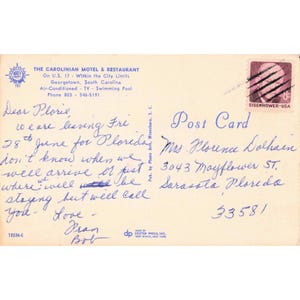 THE CAROLINIAN MOTEL & RESTAURANT
On U.S. 17 - Within the City Limits
Georgetown, South Carolina
Air-Conditioned - TV - Swimming Pool
Phone 803 - 546-5191
Dear Florie,
We are leaving Fri
28th June for Florida
don't know when we
well arrive or just
where well be
staying but well call
you - Love -
Fran
Bob
Post Card
Mrs. Florence
3043 Mayflower ST.
Sarasota Florida
33581
EISENHOWER·USA
DEXTER PRESS, INC.
WEST NYACK, NEW YORK